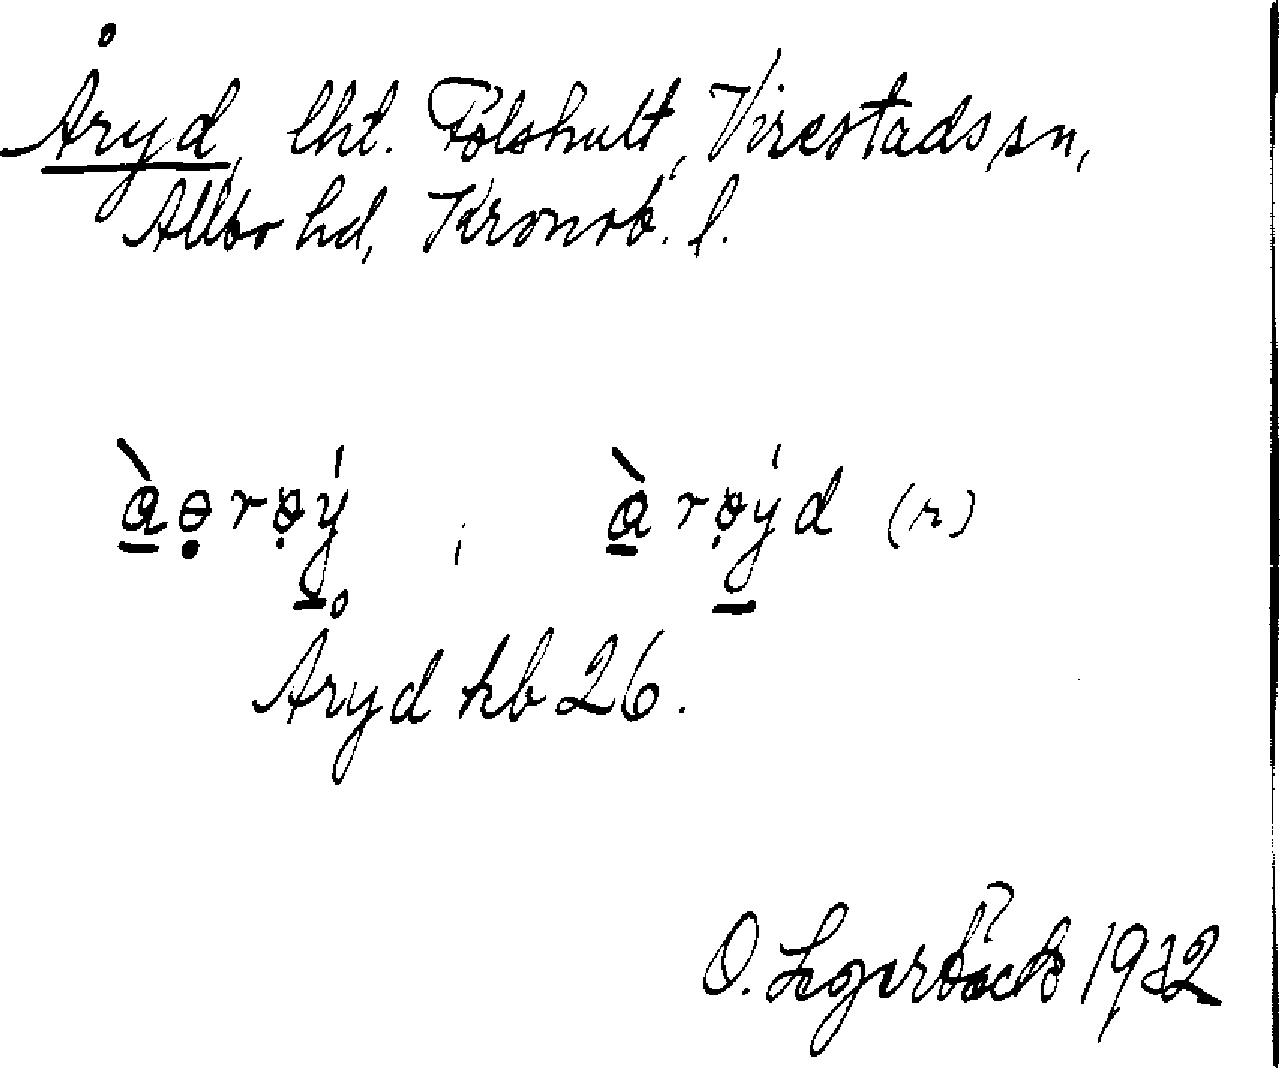 Åryd, lht. Fälshult, Virestads sn,
Allbo hd, Kronob. l.
à̱ɵ̣rɵ̣ý̱ , à̱rɵ̣ý̱d (r)
Åryd kb 26.
O. 1932